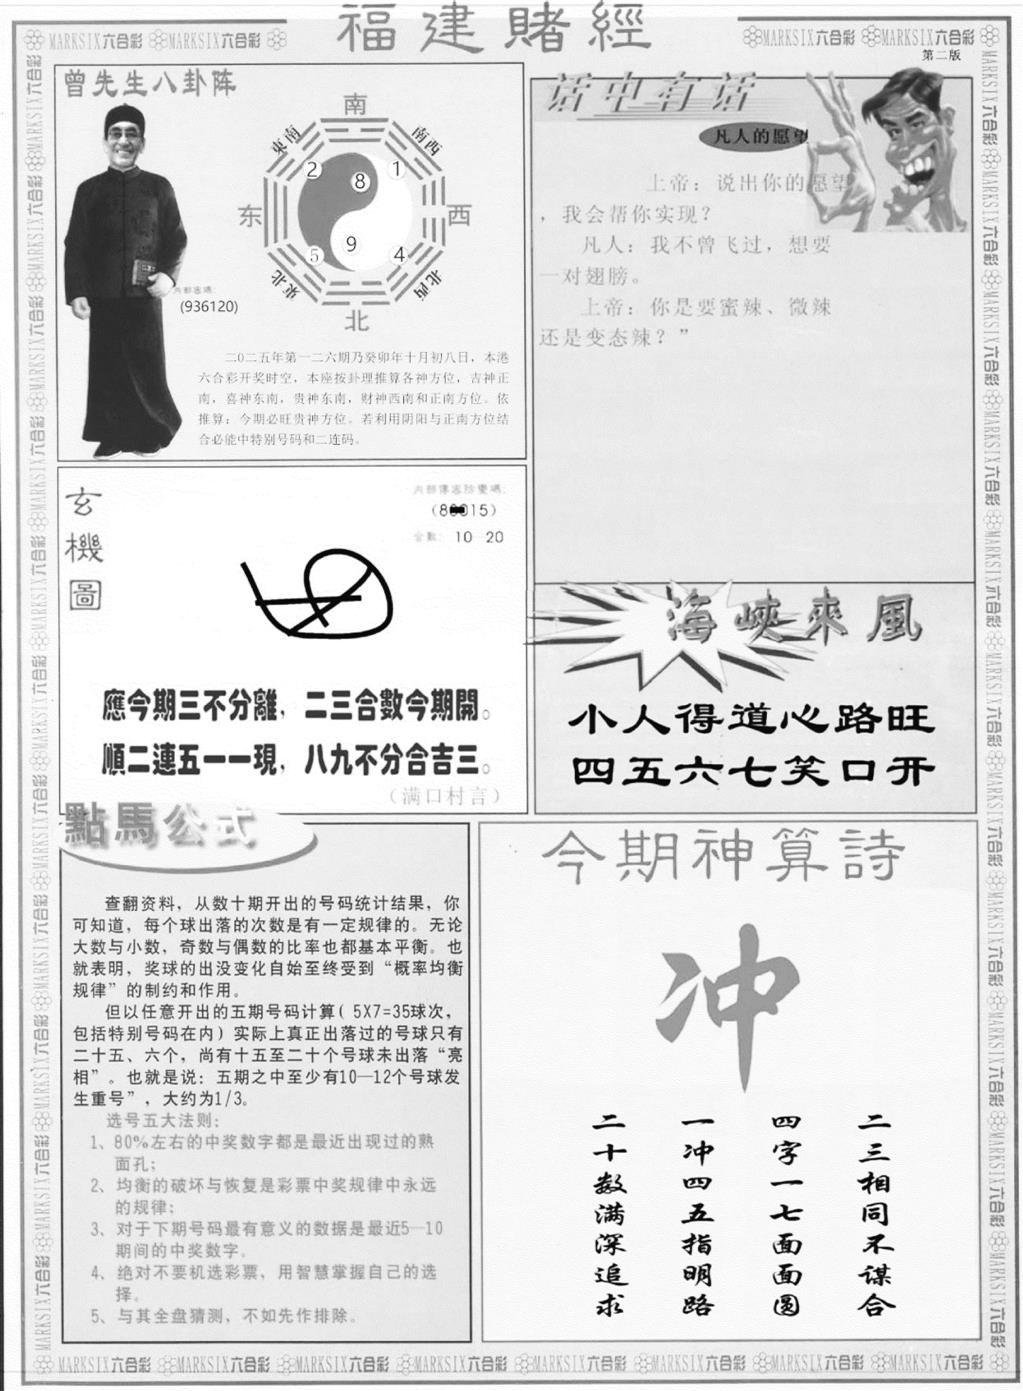 福建賭經
MARKSIX六合彩 MARKSIX六合彩
MARKSIX六合彩 MARKSIX六合彩
第二版
曾先生八卦阵
南
東南
南西
2
8
1
东
西
5
9
4
東北
北西
北
内部密碼:
(936120)
二0二五年第一二六期乃癸卯年十月初八日，本港
六合彩开奖时空，本座按卦理推算各神方位，吉神正
南，喜神东南，贵神东南，财神西南和正南方位。依
推算：今期必旺贵神方位。若利用阴阳与正南方位结
合必能中特别号码和二连码。
话中有话
凡人的愿望
上帝：说出你的愿望
，我会帮你实现？
凡人：我不曾飞过，想要
一对翅膀。
上帝：你是要蜜辣、微辣
还是变态辣？”
玄
機
圖
内部傳密防變碼:
合數: 10-20
應今期三不分離，二三合數今期開。
順二連五一一現，八九不分合吉三。
（满口村言）
海峽來風
小人得道心路旺
四五六七笑口开
點馬公式
查翻资料，从数十期开出的号码统计结果，你
可知道，每个球出落的次数是有一定规律的。无论
大数与小数，奇数与偶数的比率也都基本平衡。也
就表明，奖球的出没变化自始至终受到“概率均衡
规律”的制约和作用。
但以任意开出的五期号码计算( 5X7=35球次，
包括特别号码在内) 实际上真正出落过的号球只有
二十五、六个，尚有十五至二十个号球未出落“亮
相”。也就是说：五期之中至少有10—12个号球发
生重号”，大约为1/3。
选号五大法则：
1、80%左右的中奖数字都是最近出现过的熟
面孔；
2、均衡的破坏与恢复是彩票中奖规律中永远
的规律；
3、对于下期号码最有意义的数据是最近5—10
期间的中奖数字。
4、绝对不要机选彩票，用智慧掌握自己的选
择。
5、与其全盘猜测，不如先作排除。
今期神算詩
冲
二三相同不谋合
四字一七面面圆
一冲四五指明路
二十数满深追求
MARKSIX六合彩 MARKSIX六合彩 MARKSIX六合彩 MARKSIX六合彩 MARKSIX六合彩 MARKSIX六合彩 MARKSIX六合彩 MARKSIX六合彩